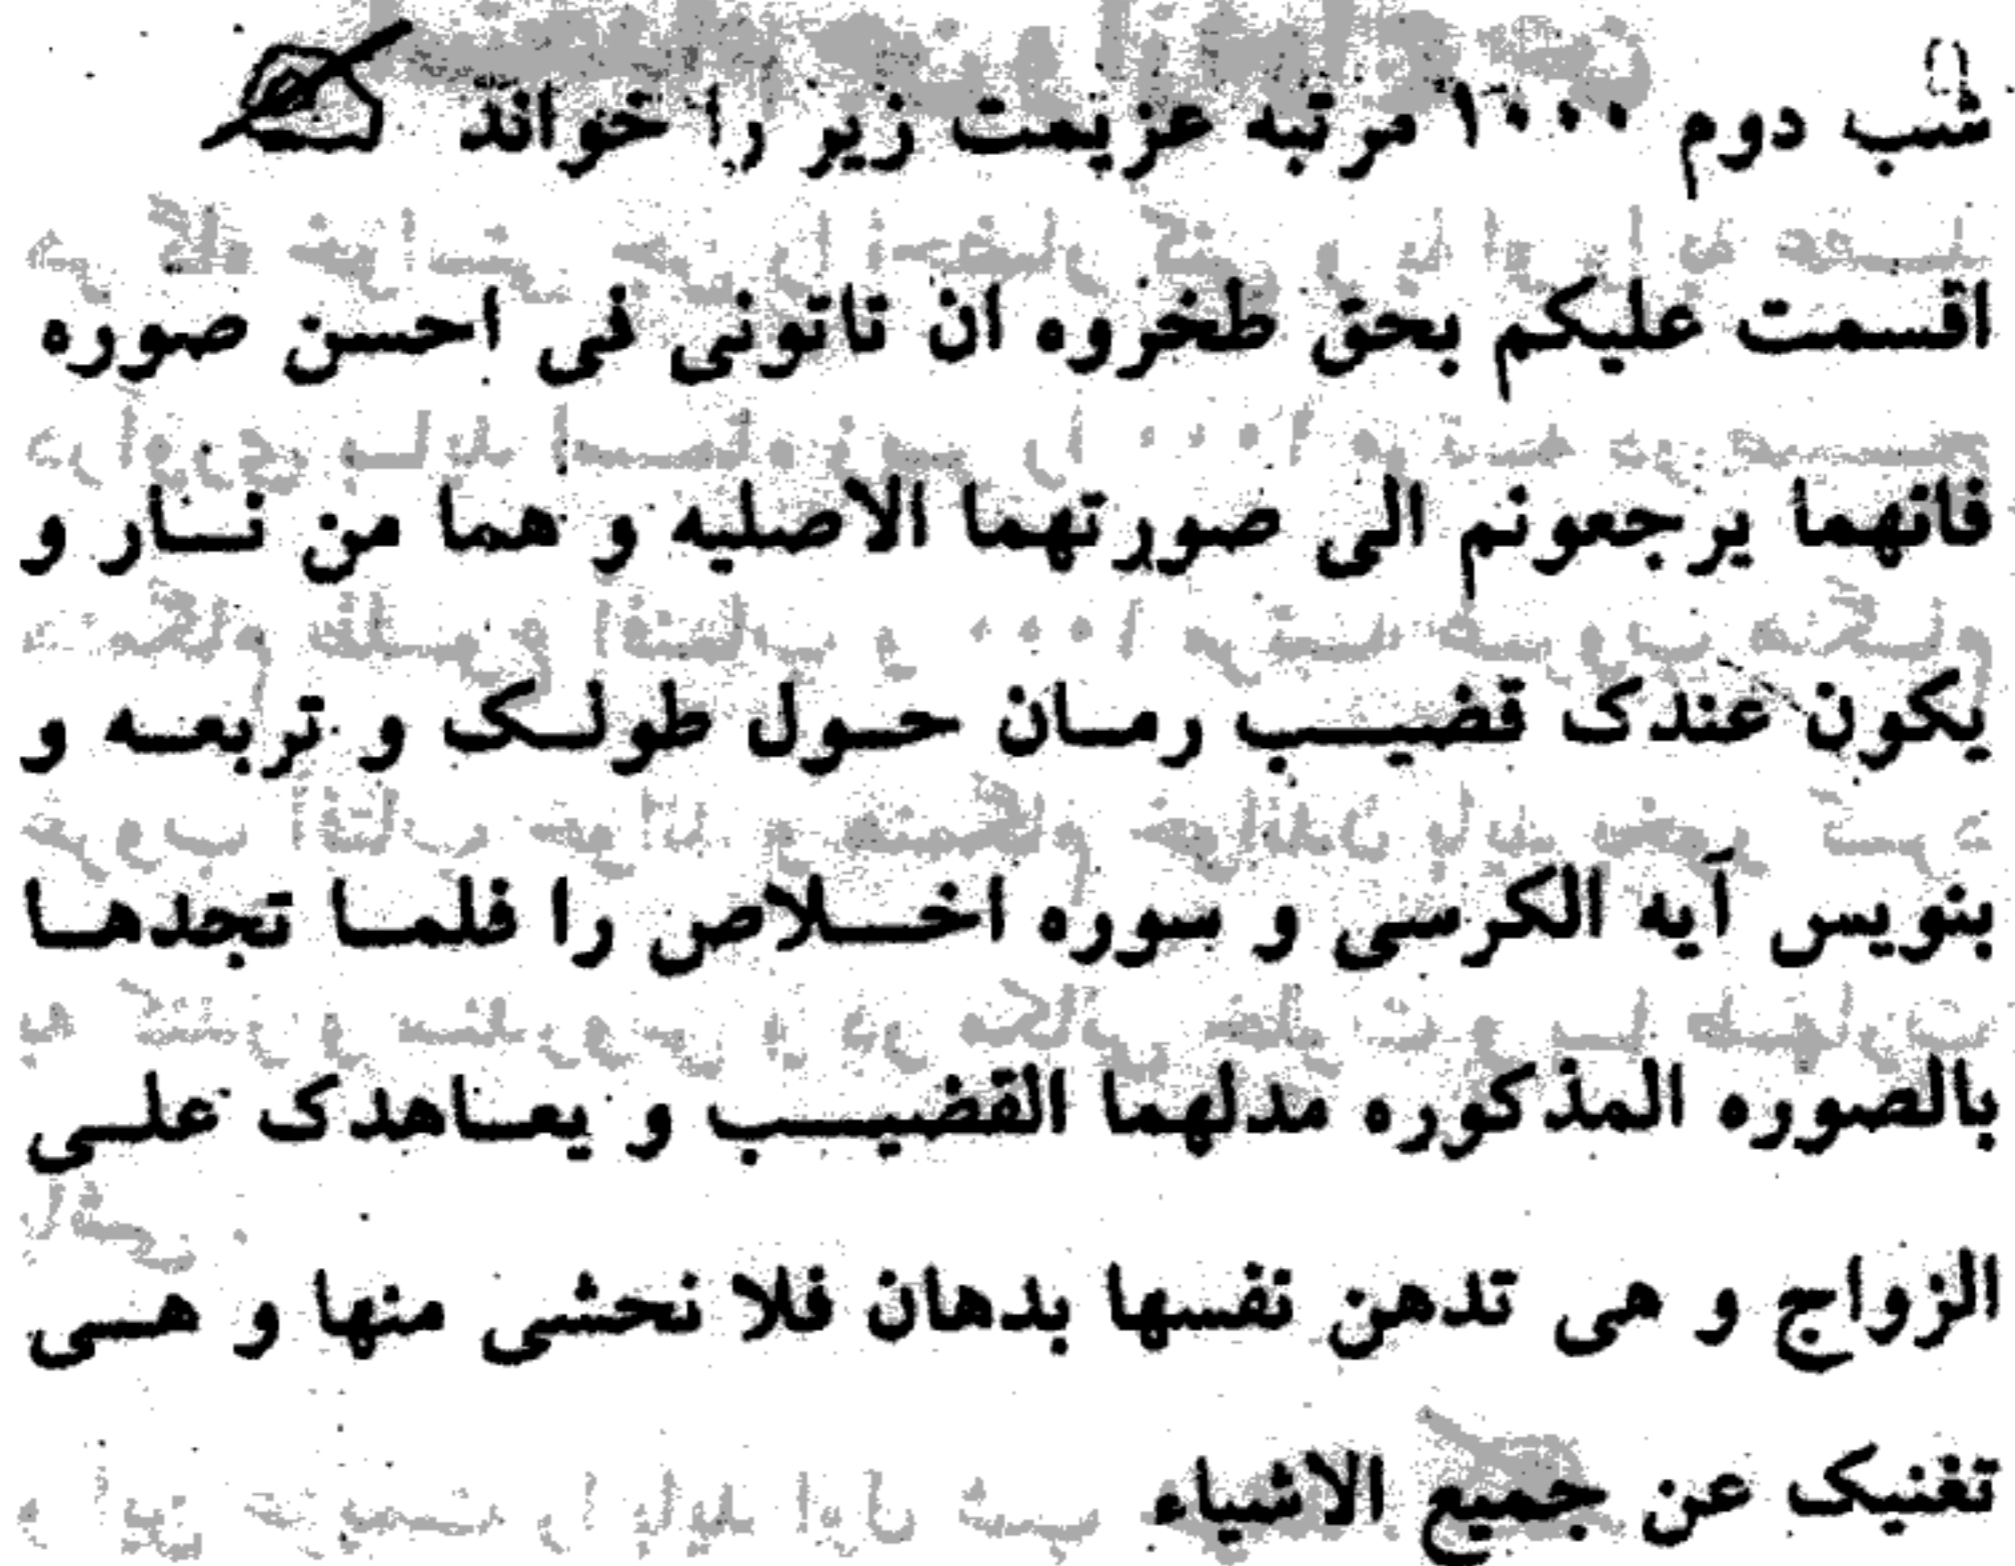 شب دوم ۱۰۰۰ مرتبه عزیمت زیر را خواند
اقسمت علیکم بحق طخروه ان تاتونی فی احسن صوره
فانهما یرجعونم الی صورتهما الاصلیه و هما من نار و
یکون عندک قضیب رمان حول طولک و تربعه و
بنویس آیه الکرسی و سوره اخلاص را فلما تجدها
بالصوره المذکوره مدلهما القضیب و یعاهدک علی
الزواج و هی تدهن نفسها بدهان فلا نحشی منها و هی
تغنیک عن جمیع الاشیاء